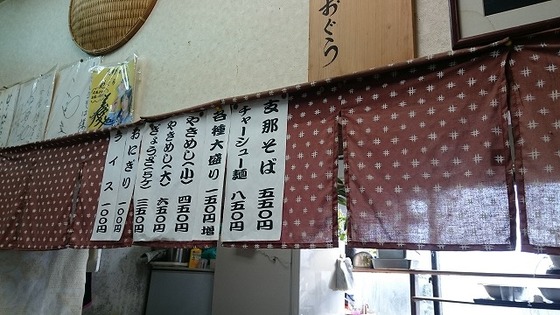 おぐら
支那そば 五五〇円
チャーシュー麺 八五〇円
各種大盛り 一五〇円増
やきめし(小) 四五〇円
やきめし(大) 六五〇円
ぎょうざ(5ケ) 三五〇円
おにぎり 一〇〇円
ライス 一〇〇円